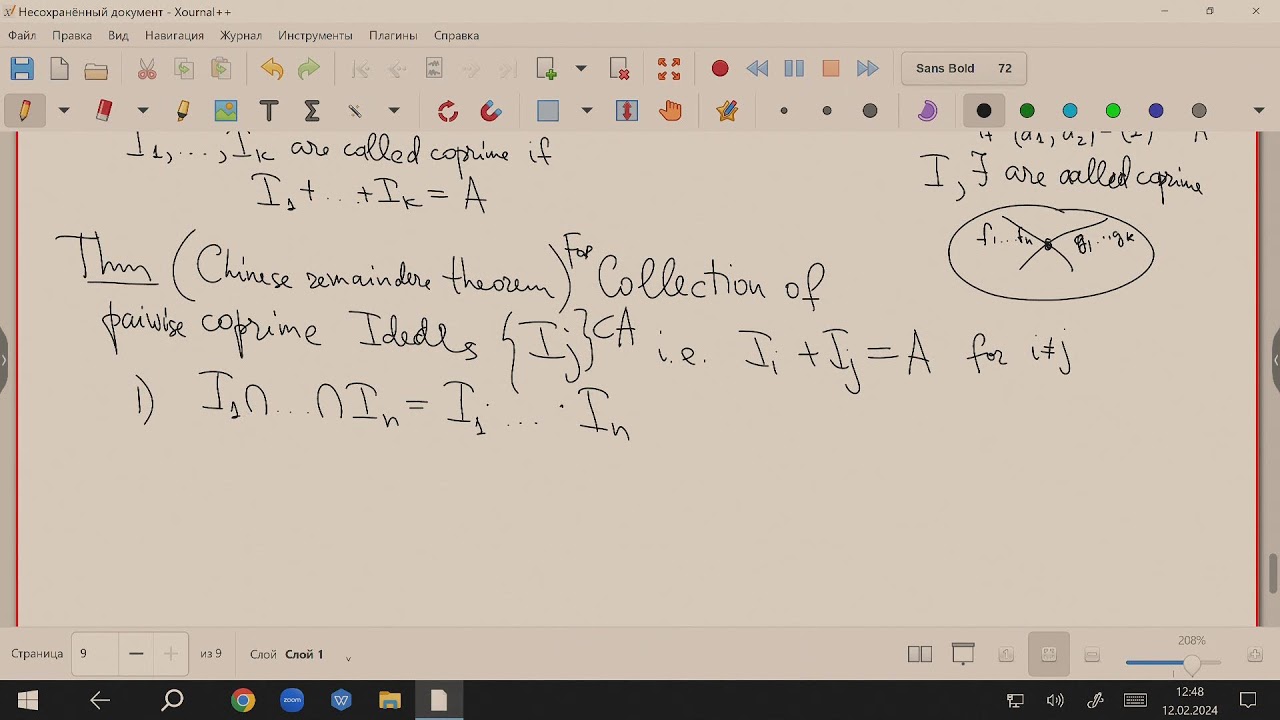 Несохранённый документ - Xournal++
Файл Правка Вид Навигация Журнал Инструменты Плагины Справка
Sans Bold 72
I1,...,Ik are called coprime if
I1+...+Ik = A
I, J are called coprime
f1...fn g1...gk
Thm (Chinese remaindere theorem) For Collection of
paiwise coprime Ideals {Ij}⊂A i.e. Ii + Ij = A for i≠j
1) I1∩...∩In = I1·...·In
Страница 9 из 9 Слой Слой 1
208%
zoom
12:48
12.02.2024